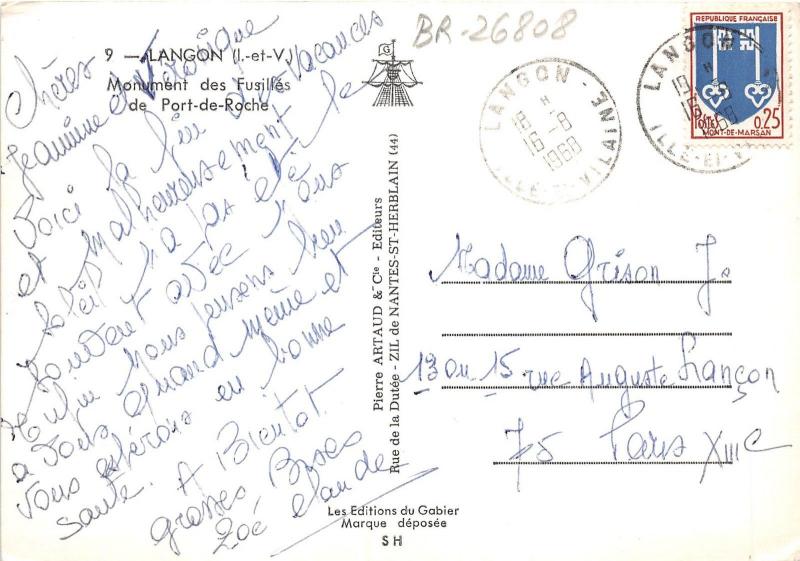 BR-26808
9 — LANGON (I.-et-V.)
Monument des Fusillés
de Port-de-Roche
Chères
Jeannine et Véronique
Voici la fin des Vacances
et malheureusement le
soleil n'a pas été
souvent avec nous
Enfin nous pensons bien
a vous quand même et
vous espérons en bonne
santé. A Bientôt.
Grosses Bises
Zoé Claude
Pierre ARTAUD & Cie - Editeurs
Rue de la Dutée - ZIL de NANTES-ST-HERBLAIN (44)
Les Editions du Gabier
Marque déposée
SH
G
LANGON
18 H
16-8
1968
ILLE-ET-VILAINE
LANGON
19 H
16-8
1968
ILLE-ET-VILAINE
REPUBLIQUE FRANÇAISE
Postes 0,25
MONT-DE-MARSAN
Madame Grison Js
13 ou 15 rue Auguste Lançon
75 Paris XIIIe